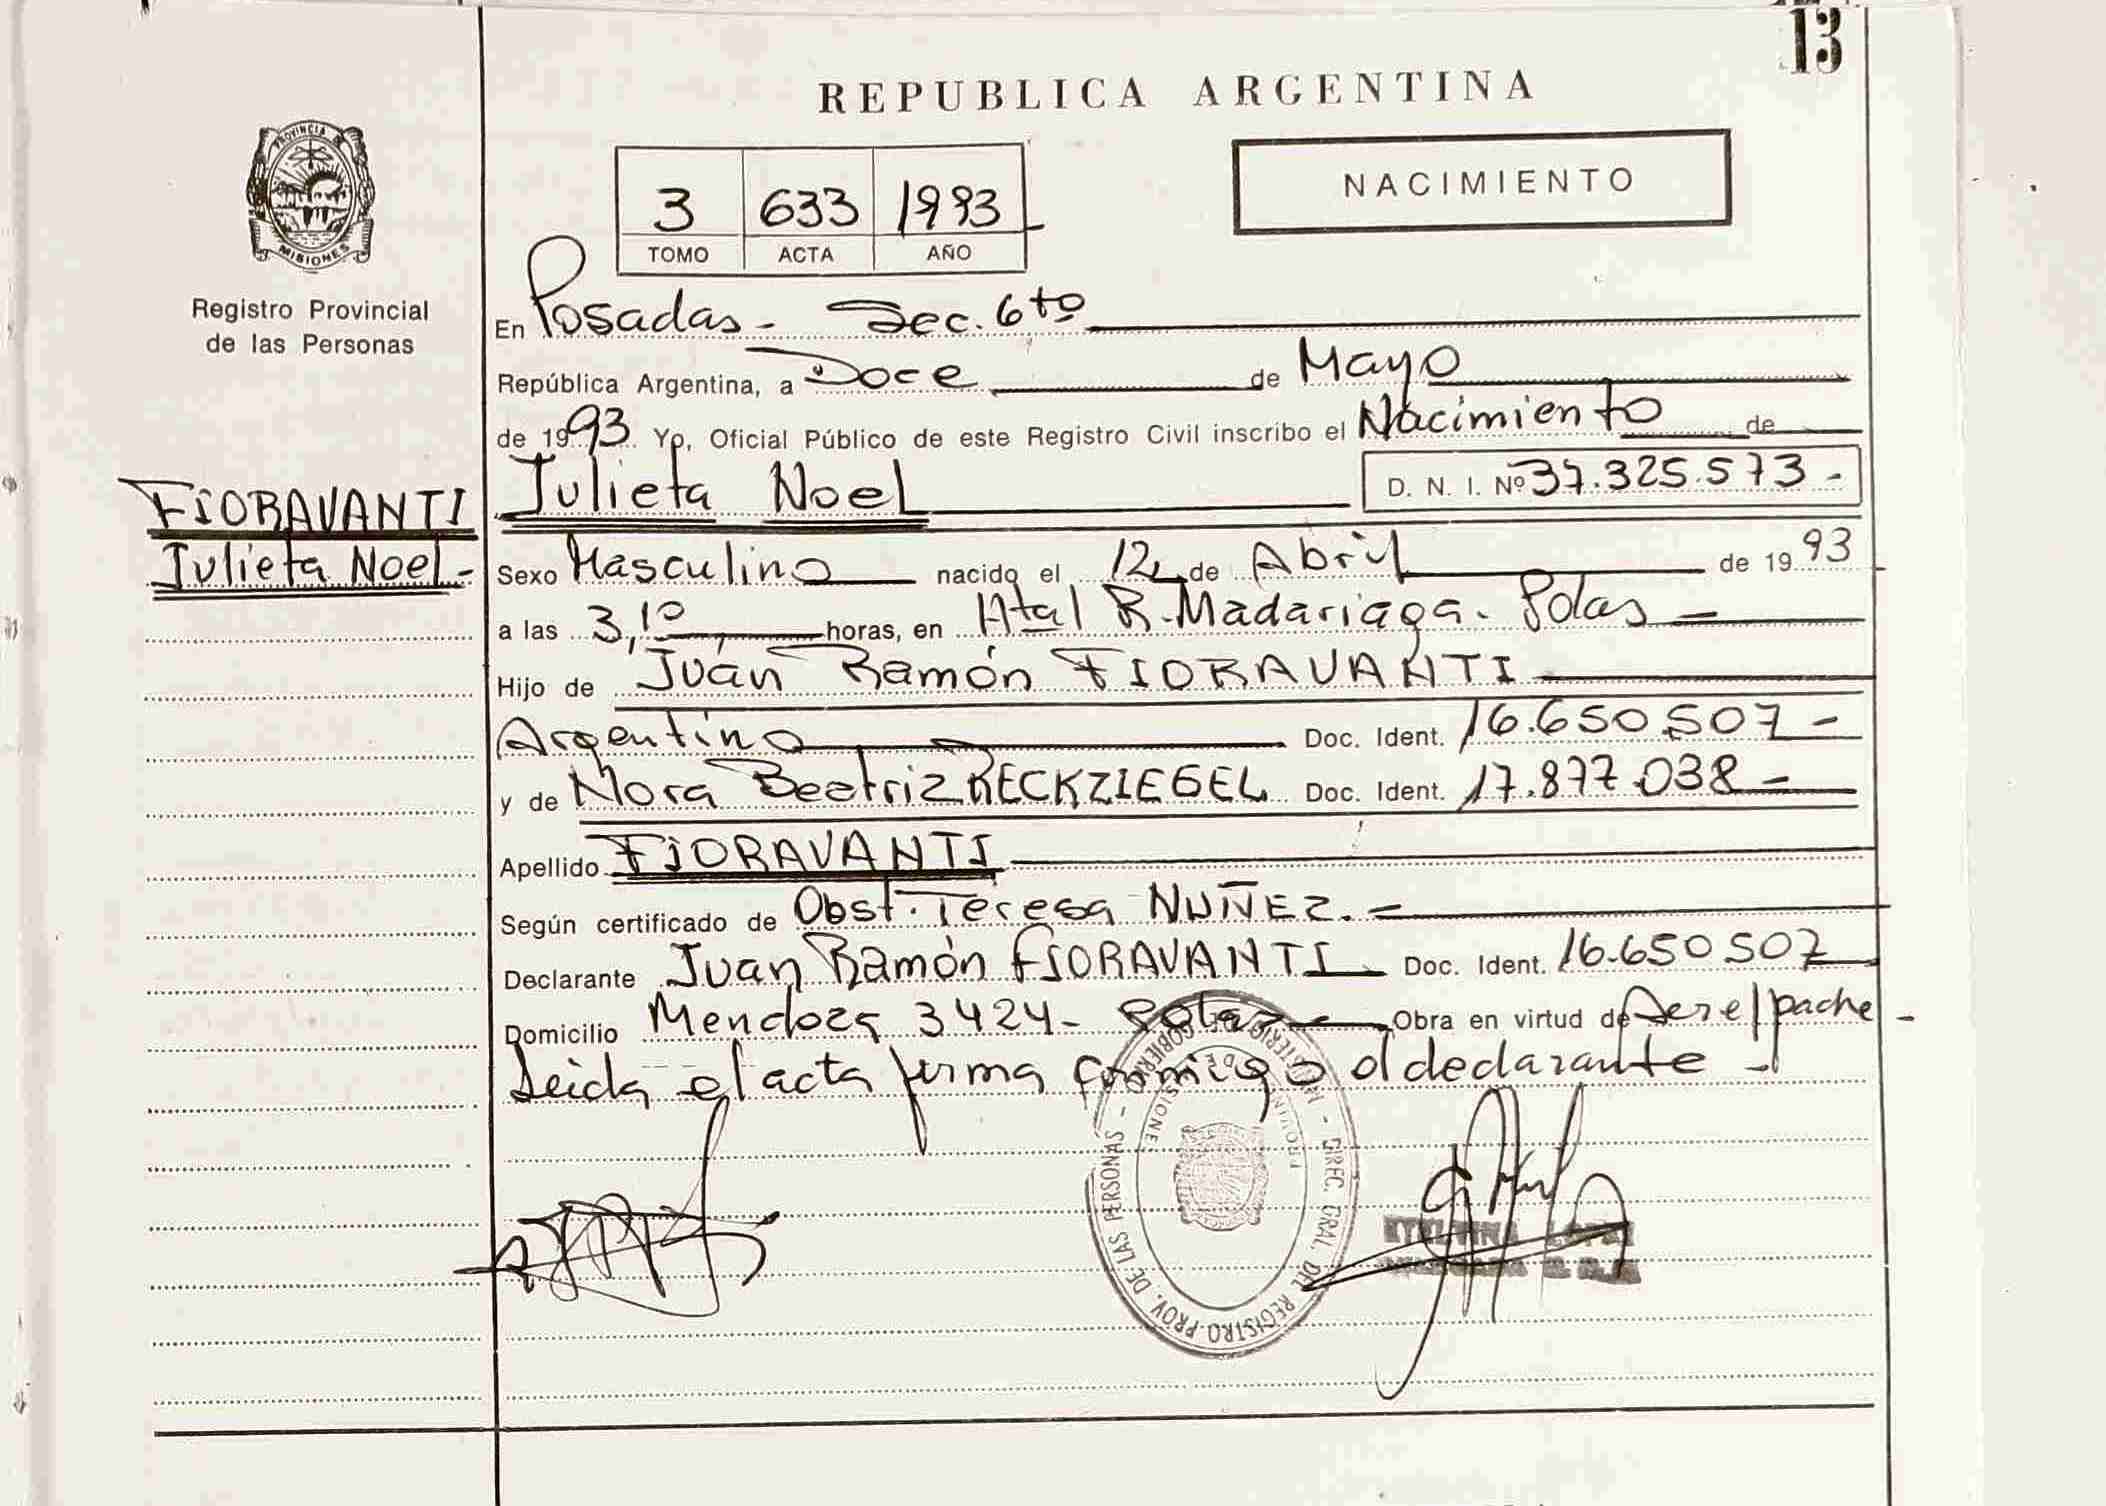 13
REPUBLICA ARGENTINA
PROVINCIA DE
MISIONES
Registro Provincial
de las Personas
NACIMIENTO
3 633 1993
TOMO ACTA AÑO
En Posadas - Sec. 6to
República Argentina, a Doce de Mayo
de 1993 Yo, Oficial Público de este Registro Civil inscribo el Nacimiento de
FIORAVANTI
Julieta Noel -
Julieta Noel D. N. I. Nº 37.325.573 -
Sexo Masculino nacido el 12 de Abril de 1993
a las 3,10 horas, en Htal R. Madariaga - Pdas -
Hijo de Juán Ramón FIORAVANTI
Argentino Doc. Ident. 16.650.507 -
y de Nora Beatriz RECKZIEGEL Doc. Ident. 17.877.038 -
Apellido FIORAVANTI
Según certificado de Obst. Teresa NUÑEZ. -
Declarante Juan Ramón FIORAVANTI Doc. Ident. 16.650 507
Domicilio Mendoza 3424 - Pdas - Obra en virtud de Ser el padre -
Leida el acta firma conmigo el declarante -
MINISTERIO DE GOBIERNO - DIREC. GRAL. DEL REGISTRO PROV. DE LAS PERSONAS -
PROVINCIA DE MISIONES
LOPEZ